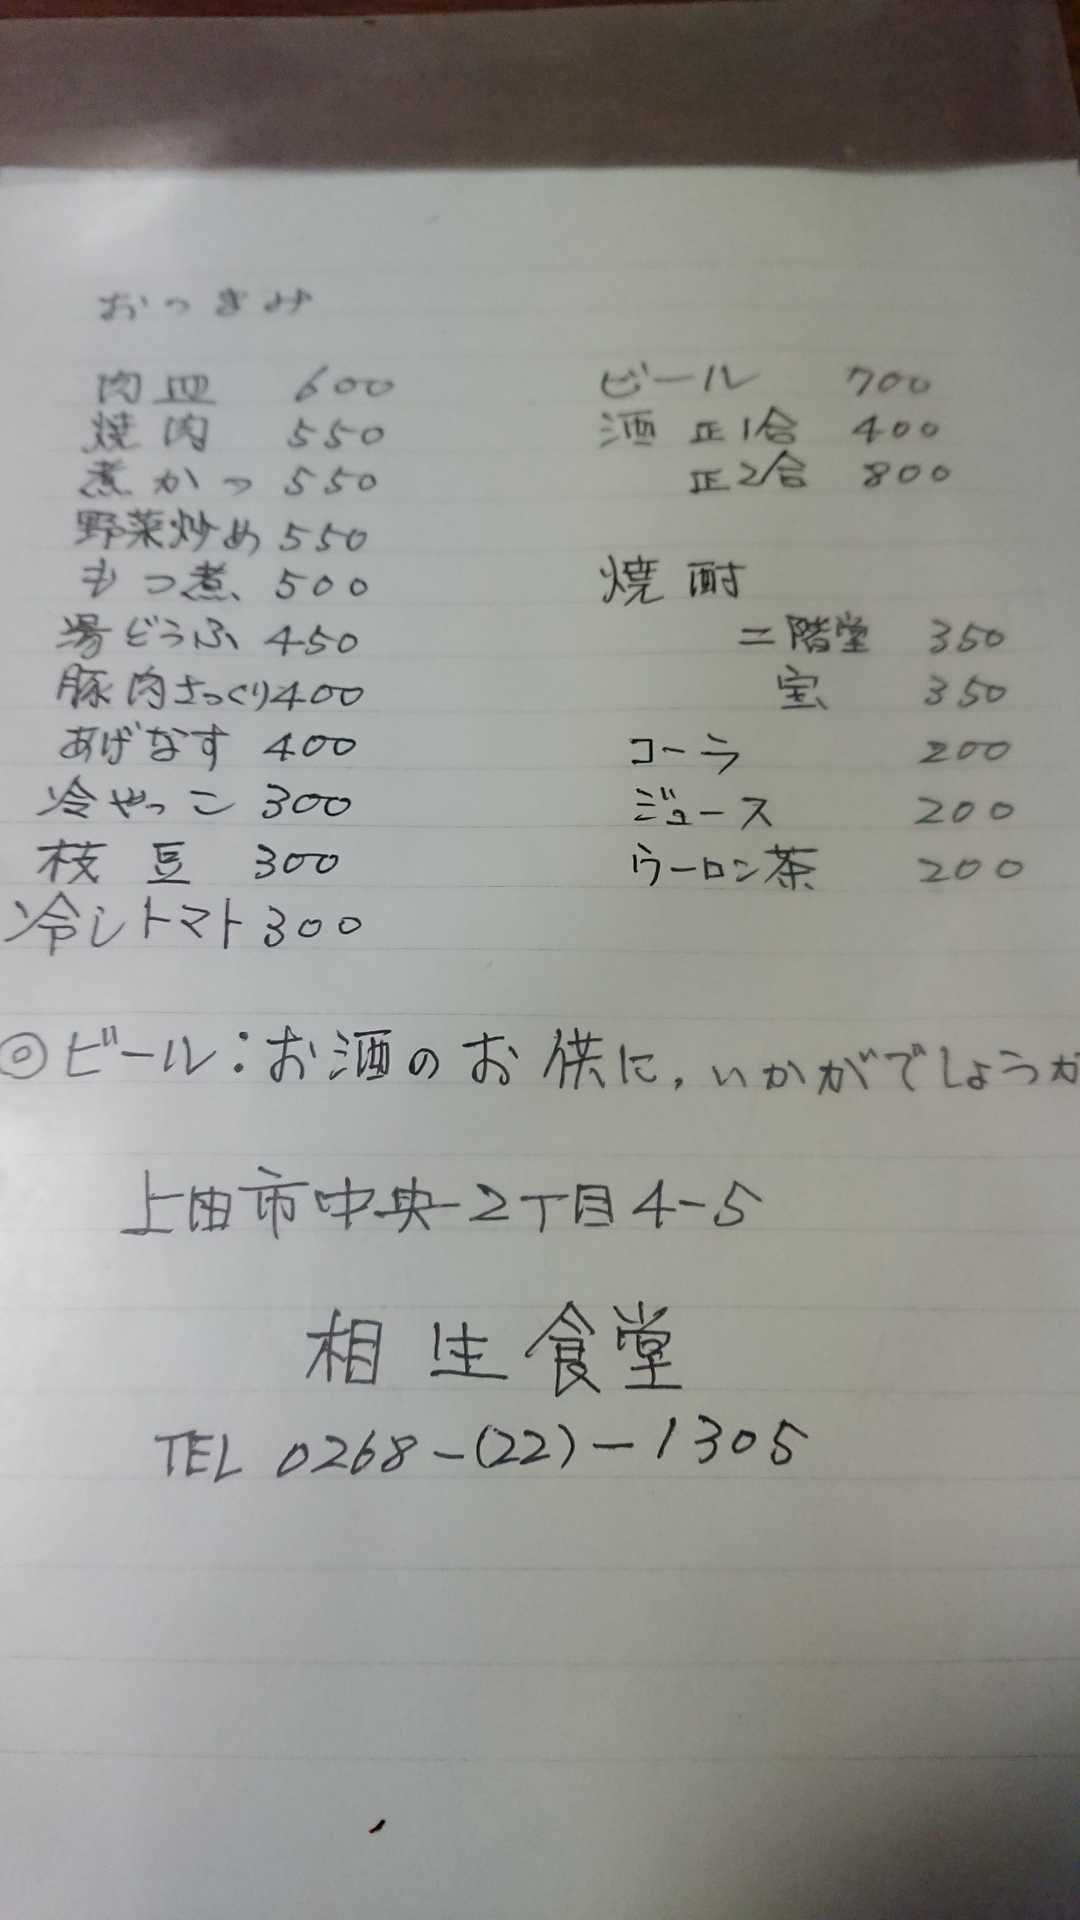 おつまみ
肉皿 600
焼肉 550
煮かつ 550
野菜炒め 550
もつ煮 500
湯どうふ 450
豚肉さっくり 400
あげなす 400
冷やっこ 300
枝豆 300
冷しトマト 300
ビール 700
酒 正1合 400
正2合 800
焼酎
二階堂 350
宝 350
コーラ 200
ジュース 200
ウーロン茶 200
◎ビール:お酒のお供に,いかがでしょうか
上田市中央2丁目4-5
相生食堂
TEL 0268-(22)-1305